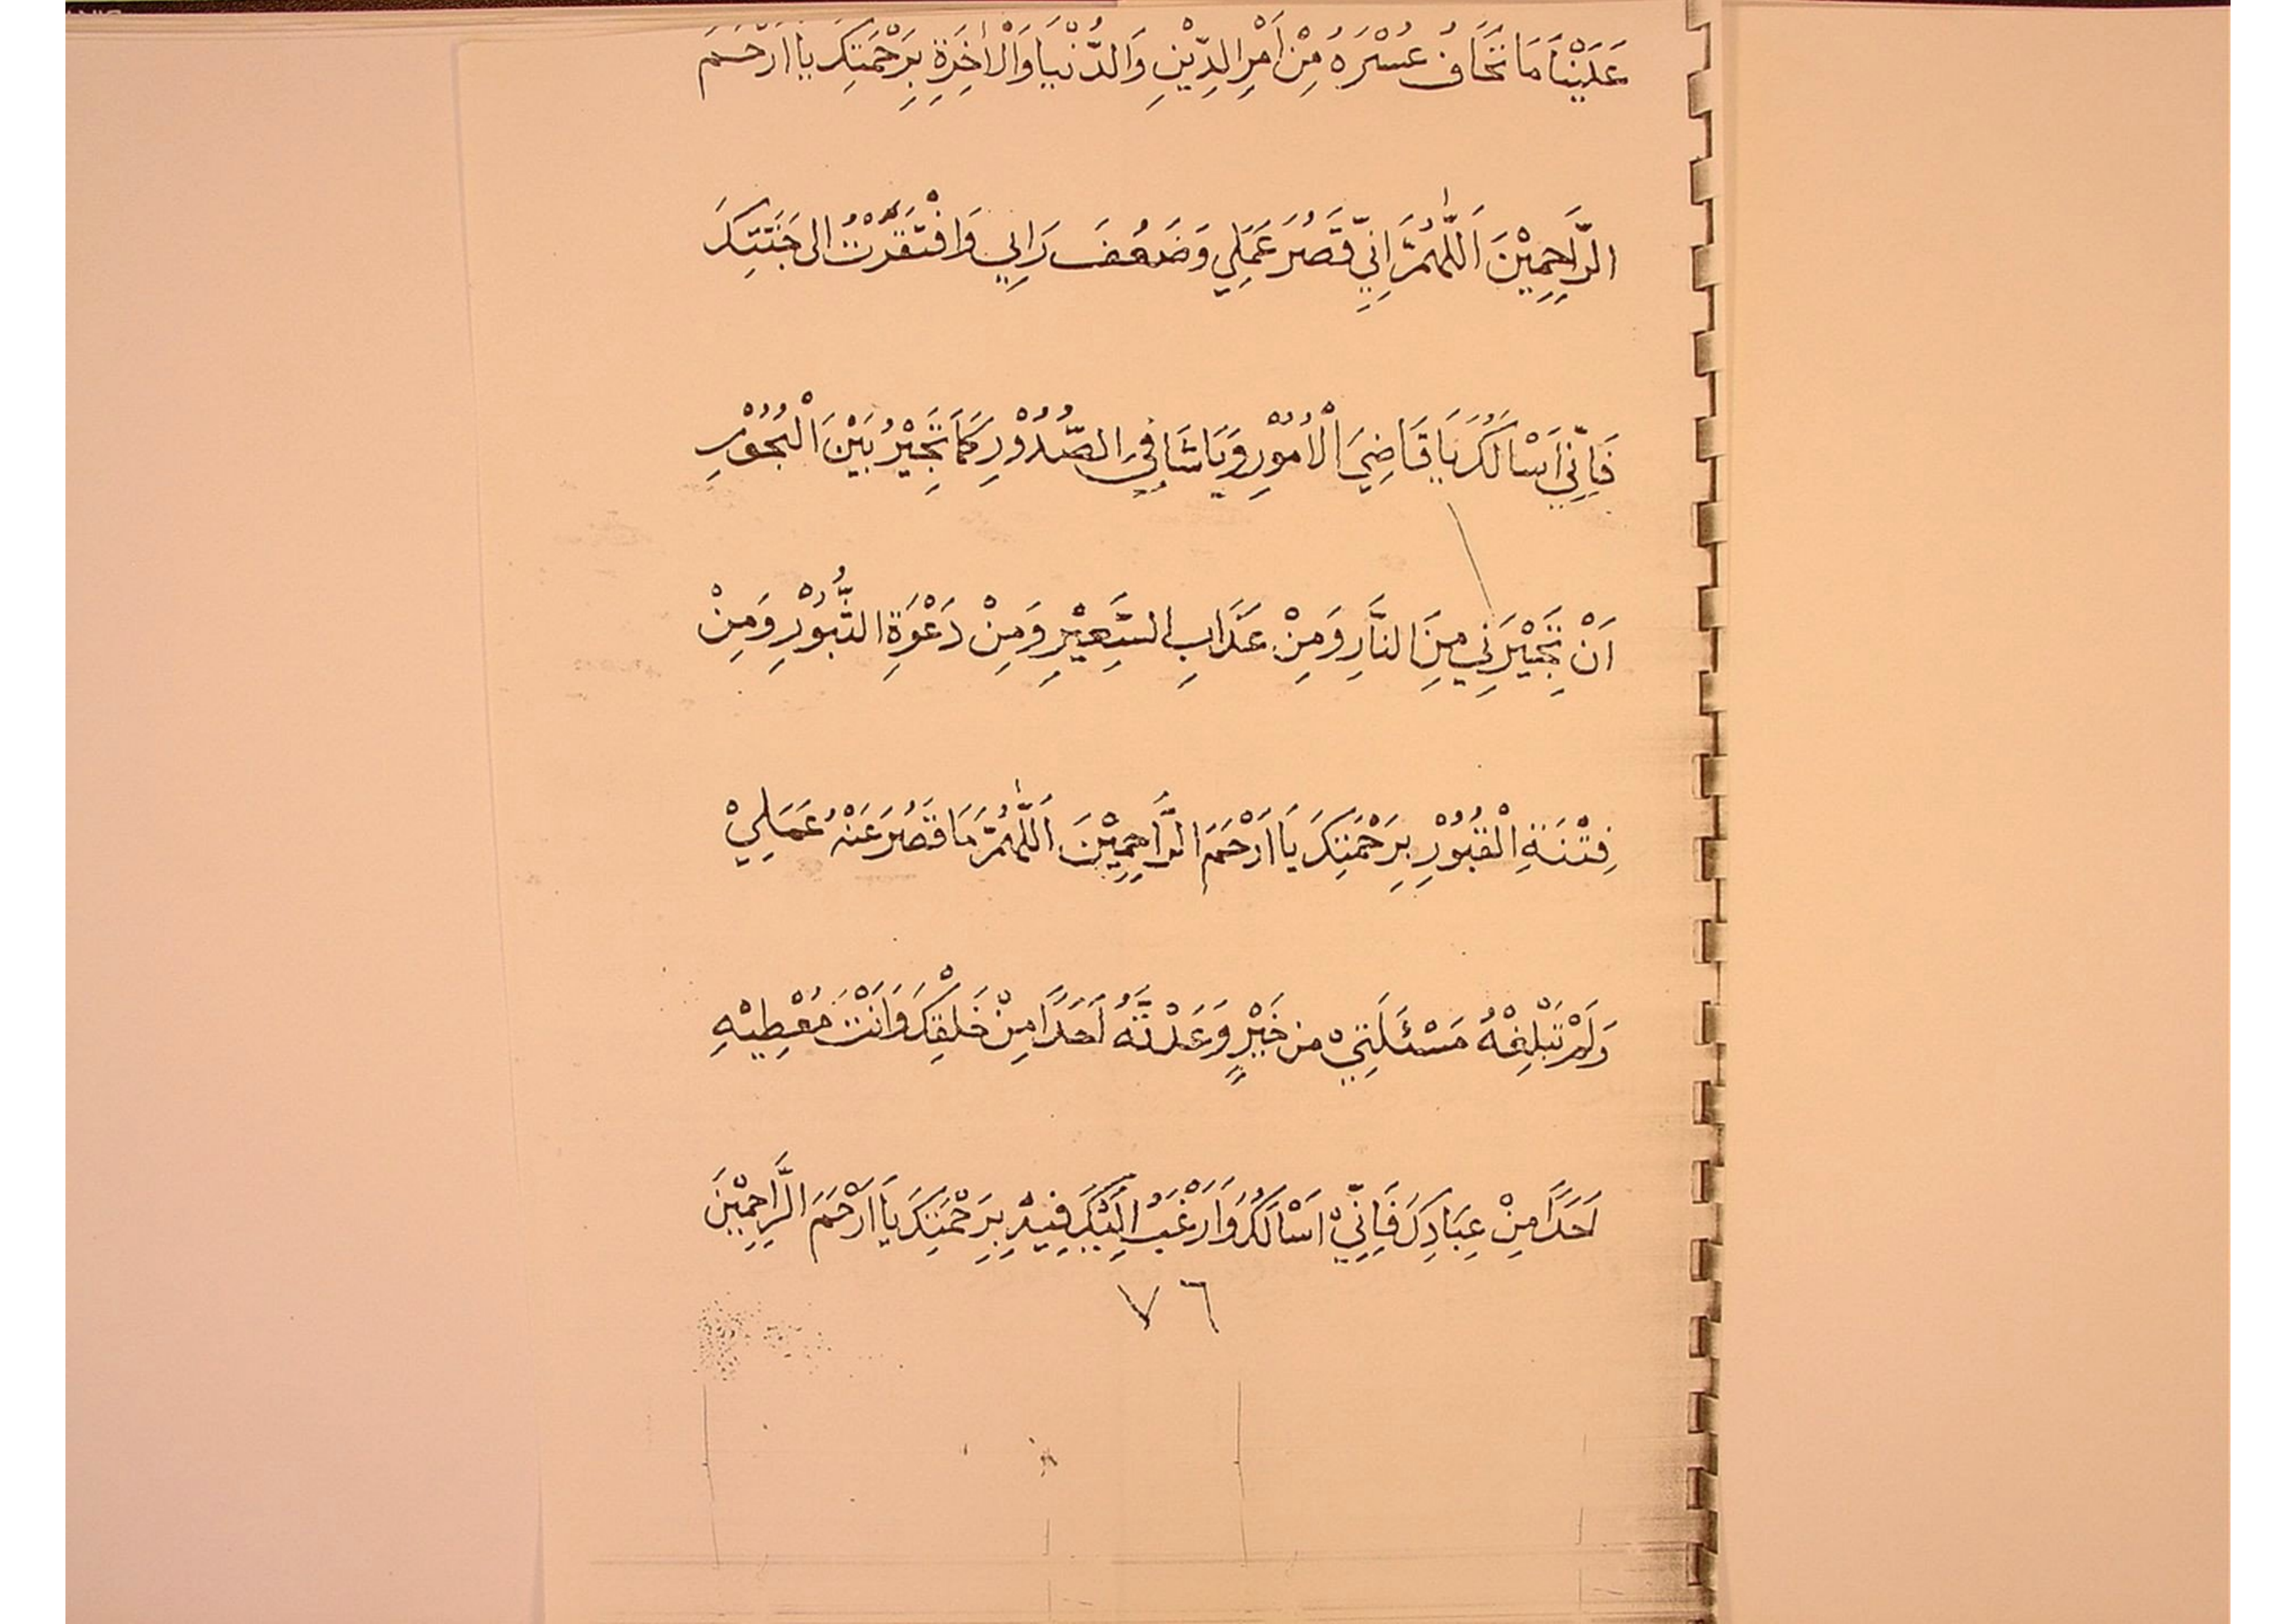 عَلَيْنَا مَا نَخَافُ عُسْرَهُ مِنْ اَمْرِ الدِّيْنِ وَالدُّنْيَا وَالْاٰخِرَةِ بِرَحْمَتِكَ يَا اَرْحَمَ
الرَّاحِمِيْنَ اَللّٰهُمَّ اِنِّي قَصُرَ عَمَلِي وَضَعُفَ رَاِيي وَافْتَقَرْتُ الى جَنَّتِكَ
فَاِنِّي اَسْالَكُ يَا قَاضِيَ الْاُمُوْرِ وَيَا شَافِيَ الصُّدُوْرِ كَمَا تُجِيْرُ بَيْنَ الْبُحُوْرِ
اَنْ تُجِيْرَنِي مِنَ النَّارِ وَمِنْ عَذَابِ السَّعِيْرِ وَمِنْ دَعْوَةِ الثُّبُوْرِ وَمِنْ
فِتْنَةِ الْقُبُوْرِ بِرَحْمَتِكَ يَا اَرْحَمَ الرَّاحِمِيْنَ اَللّٰهُمَّ مَا قَصُرَ عَنْهُ عَمَلِيْ
وَلَمْ تَبْلِغْهُ مَسْئَلَتِيْ من خَيْرٍ وَعَدْتَهُ اَحَدًا مِنْ خَلْقِكَ وَاَنْتَ مُعْطِيْهِ
اَحَدًا مِنْ عِبَادِكَ فَاِنِّيْ اَسْالَكُ وَاَرْغَبُ اِلَيْكَ فِيْهِ بِرَحْمَتِكَ يَا اَرْحَمَ الرَّاحِمِيْنَ
٧٦